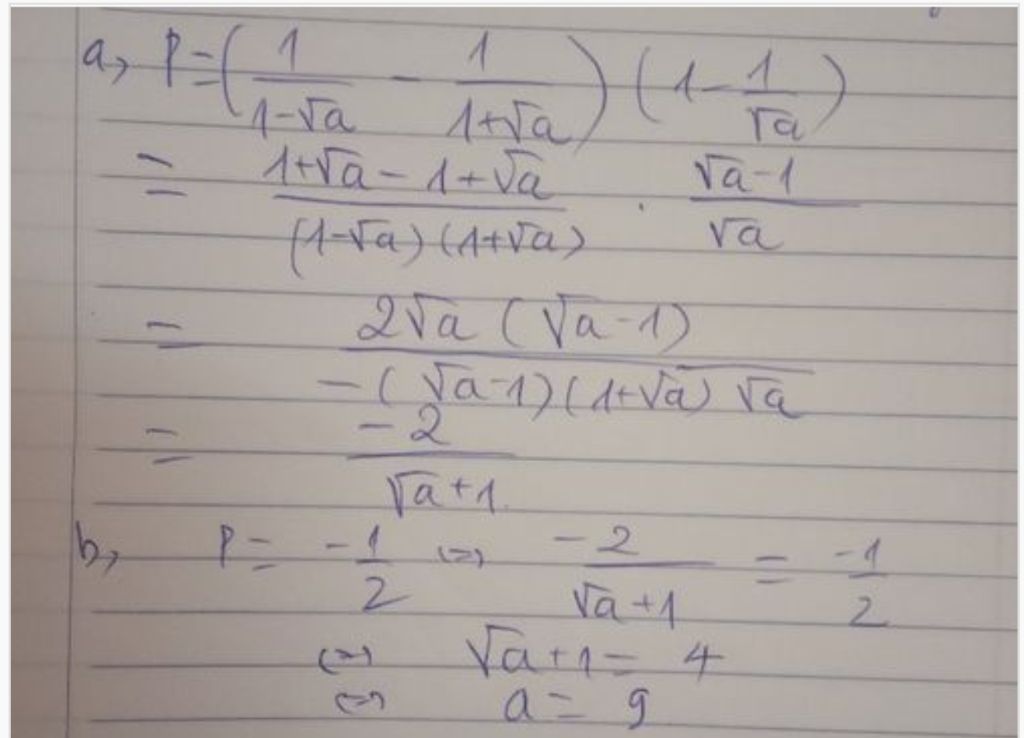 a, P = (1/(1-√a) - 1/(1+√a)) (1 - 1/√a)
= (1+√a - 1+√a)/((1-√a)(1+√a)) . (√a-1)/√a
= (2√a (√a-1))/(-(√a-1)(1+√a) √a)
= -2/(√a+1)
b, P = -1/2 ⇔ -2/(√a+1) = -1/2
⇔ √a+1 = 4
⇔ a = 9